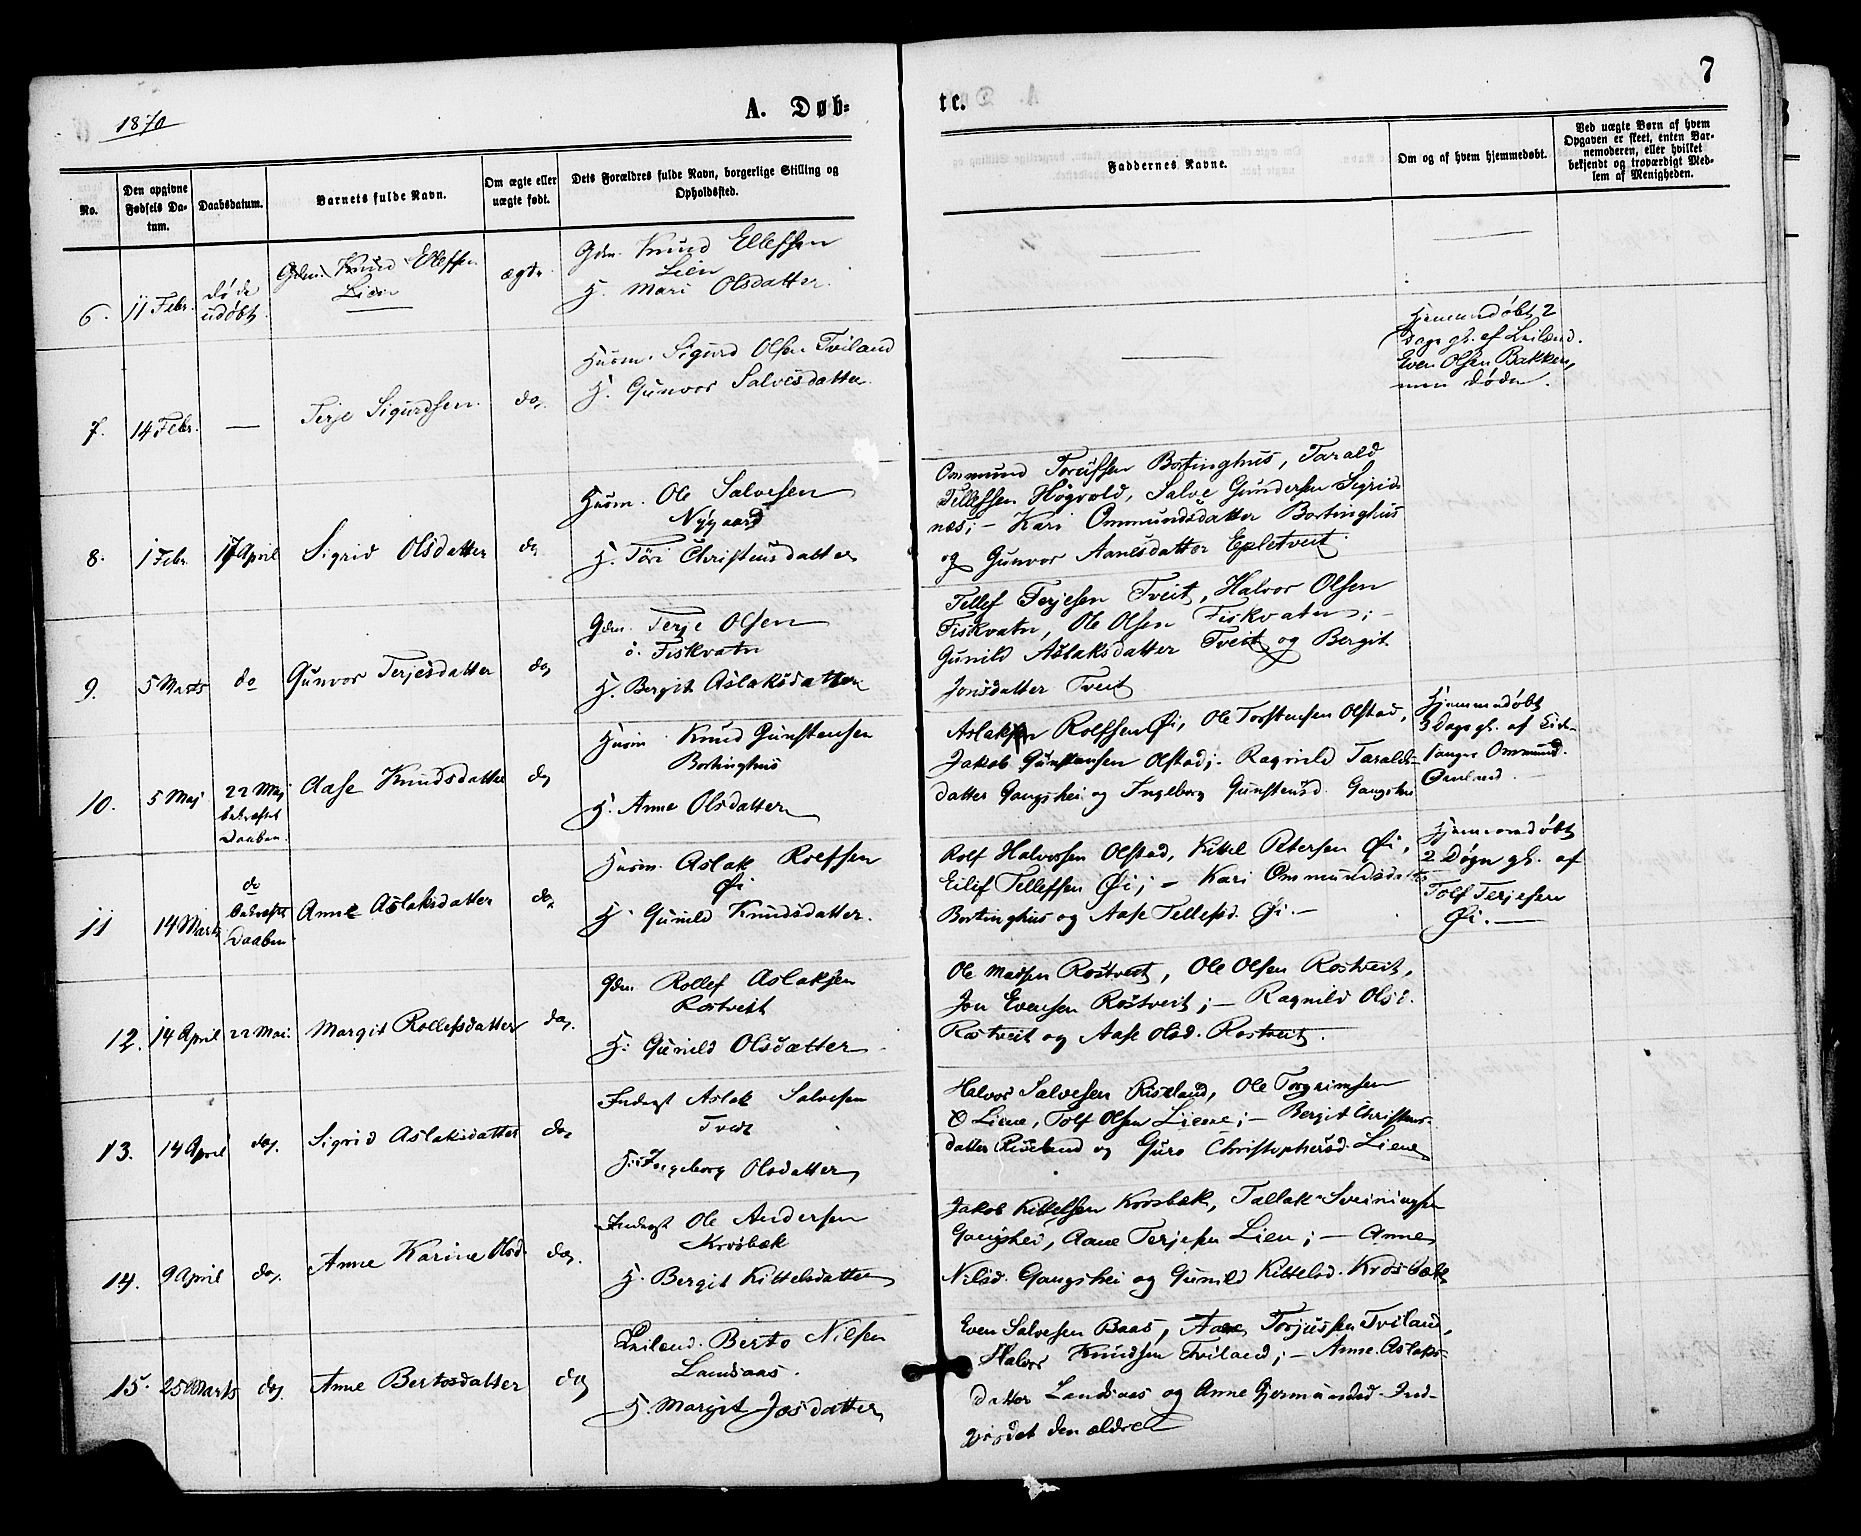 1870
A. Døb-
tc.
7
No.
Den opgivne Fødsels Da-tum.
Daabsdatum.
Barnets fulde Navn.
Om ægte eller uægte født.
Dets Forældres fulde Navn, borgerlige Stilling og Opholdssted.
Faddernes Navne.
Om og af hvem hjemmedøbt.
Ved uægte Børn af hvem Opgaven er skeet, enten Bar-nemoderen, eller hvilket bekjendt og troværdigt Med-lem af Menigheden.
6.
11 Febr.
døde
udøbt.
Gdm. Knud Ellefsen
Lien
ægte
Gdm. Knud Ellefsen
Lien
H. Mari Olsdatter.
7.
14 Febr.
—
Terje Sigurdsen.
do,
Husm. Sigurd Olsen Tviland
H. Gunvor Salvesdatter.
Hjemmedøbt 2
Dage gl. af Leilænd.
Even Olsen Bakken,
men døde.
8.
1 Febr.
17 April
Sigrid Olsdatter
do
Husm. Ole Salvesen
Nygaard
H. Töri Christensdatter
Ommund Torufsen Bortinghus, Tarald
Tellefsen Høgvold, Salve Gundersen Sigrid-
næs; — Kari Ommundsdatter Bortinghus
og Gunvor Aanesdatter Epletveit.
9.
5 Marts
do
Gunvor Terjesdatter
do,
Gdm. Terje Olsen
ö. Fiskvatn
H. Bergit Aslaksdatter
Tellef Terjesen Tveit, Halvor Olsen
Fiskvatn, Ole Olsen Fiskvatn; —
Gunild Aslaksdatter Tveit og Bergit
Jonsdatter Tveit
10.
5 Maj
22 Maj
bekræftet
Daaben.
Aase Knudsdatter
do
Husm. Knud Gunstensen
Bortinghus
H. Anne Olsdatter
Aslak Rolfsen Øi, Ole Torstensen Olstad,
Jakob Gunstensen Olstad; Ragnild Taralds-
datter Gangshei og Ingeborg Gunstensd. Gangshei
Hjemmedøbt
3 Dage gl. af
Ommund.
11
14 Marts
do
bekræftet
Daaben
Anne Aslaksdatter
do,
Husm. Aslak Rolfsen
Øi
H. Gunild Knudsdatter.
Rolf Halvorsen Olstad, Kittel Petersen Øi,
Eilif Tellefsen Øi; — Kari Ommundsdatter
Bortinghus og Aase Tellefsd. Øi. —
Hjemmedøbt
2 Døgn gl. af
Tolf Terjesen
Øi. —
12.
14 April
22 Mai.
Margit Rollefsdatter
do,
Gdm. Rollef Aslaksen
Rostveit
H. Gunild Olsdatter
Ole Madsen Rostveit, Ole Olsen Rostveit,
Jon Evensen Rostveit; — Ragnild Olsd.
Rostveit og Aase Olsd. Rostveit.
13.
14 April
do,
Sigrid Aslaksdatter
do,
Inderst Aslak Salvesen
Tveit
H. Ingeborg Olsdatter,
Halvor Salvesen Risland, Ole Torgrimsen
Liene, Tolf Olsen Liene; — Bergit Christens-
datter Risland og Guro Christophersd. Liene
14.
9 April
do,
Anne Karine Olsd.
do,
Inderst Ole Andersen
Krosbæk
H. Bergit Kittelsdatter
Jakob Kittelsen Krosbæk, Tallak Sveiningsen
Gangshei, Aane Terjesen Lien; — Anne
Nilsd. Gangshei og Gunild Kittelsd. Krosbæk
15.
25 Marts
do,
Anne Bertosdatter
do,
Leilænd. Berto Nilsen
Landaas.
H. Margit Josdatter,
Even Salvesen Baas, Aane Torjussen Tviland,
Halvor Knudsen Tviland; — Anne Aslaks-
datter Landaas og Anne Gjermundsd. Ind-
gjerdet den ældre